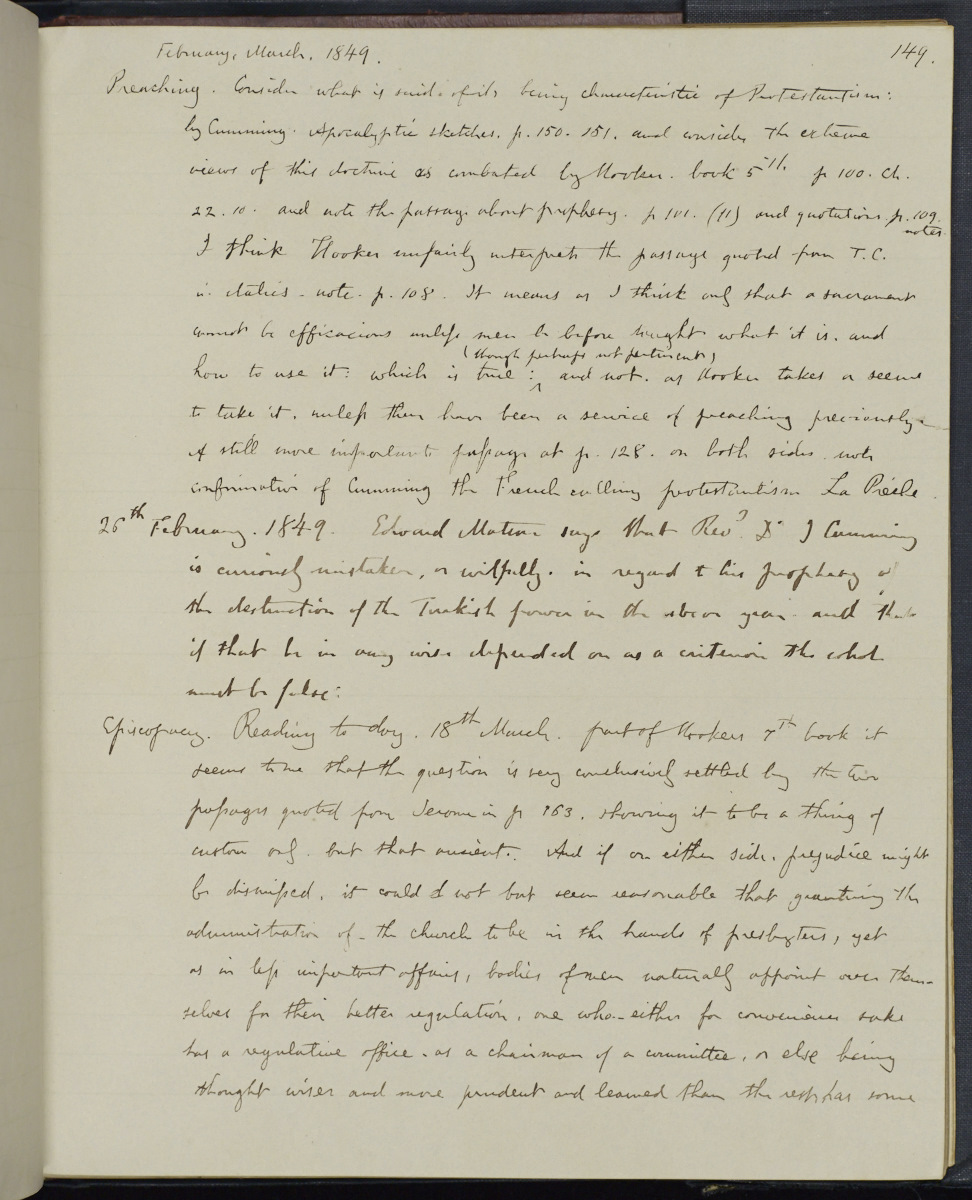 February, March. 1849.
149.
Preaching. Consider what is said of its being characteristic of Protestantism:
by Cumming. Apocalyptic sketches. p. 150. 151. and consider the extreme
views of this doctrine as combated by Hooker. book 5th. p 100. Ch.
22. 10. and note the passage about prophesy. p 101. (11) and quotations. p. 109.
notes.
I think Hooker unfairly interprets the passage quoted from T. C.
in italics. note. p. 108. It means as I think only that a sacrament
cannot be efficacious unless men be before taught what it is. and
(though perhaps not pertinent)
how to use it: which is true: and not. as Hooker takes or seems
to take it. unless there have been a service of preaching previously.
A still more important passage at p. 128. on both sides. note
confirmation of Cumming the French calling protestantism La Prêche.
26th February. 1849. Edward says that Revd. Dr J Cumming
is curiously mistaken, or wilfully. in regard to his prophecy of
the destruction of the Turkish power in the year. and that
if that be in any wise depended on as a criterion the whole
must be false:
Episcopacy. Reading to day. 18th March. part of Hookers 7th book it
seems to me that the question is very conclusively settled by the two
passages quoted from Jerome in p 163. showing it to be a thing of
custom only. but that ancient. And if on either side. prejudice might
be dismissed. it could not but seem reasonable that granting the
administration of the church to be in the hands of presbyters, yet
as in less important affairs, bodies of men naturally appoint over them-
selves for their better regulation, one who either for convenience sake
has a regulative office. as a chairman of a committee, or else being
thought wiser and more prudent and learned than the rest has some